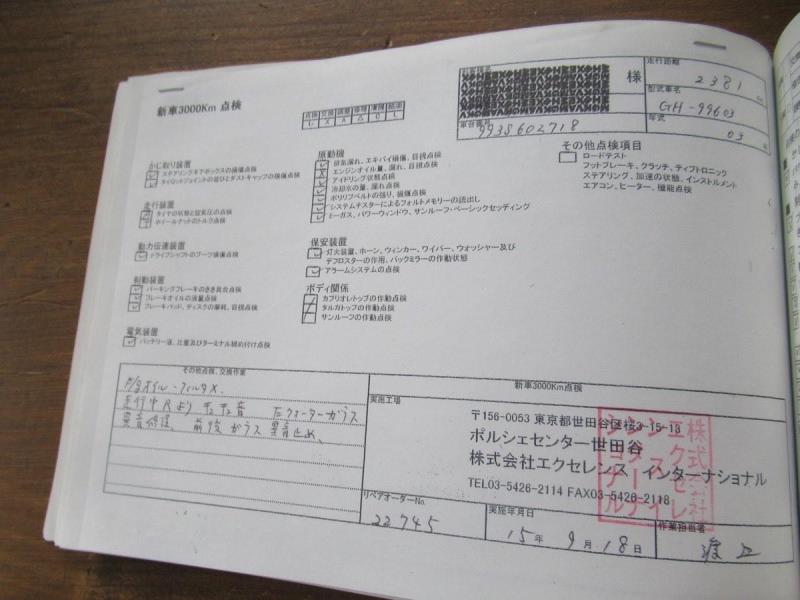 新車3000Km 点検
点検 交換 調整 修理 清掃 給油
レ X A △ O L
様
走行距離
2381
型式車名
GH-99603
年式
03
車台番号
993S602718
かじ取り装置
ステアリングギアボックスの損傷点検
タイロッドジョイントの遊びとダストキャップの損傷点検
走行装置
タイヤの状態と空気圧の点検
ホイールナットのトルク点検
動力伝達装置
ドライブシャフトのブーツ損傷点検
制動装置
パーキングブレーキのきき具合点検
ブレーキオイルの液量点検
ブレーキパッド、ディスクの摩耗、目視点検
電気装置
バッテリー液、比重及びターミナル締め付け点検
原動機
排気漏れ、エキパイ損傷、目視点検
エンジンオイル量、漏れ、目視点検
アイドリング状態点検
冷却水の量、漏れ点検
ポリリブベルトの張り、損傷点検
システムテスターによるフォルトメモリーの読出し
Eーガス、パワーウィンドウ、サンルーフ・ベーシックセッティング
保安装置
灯火装置、ホーン、ウィンカー、ワイパー、ウォッシャー及び
デフロスターの作用、バックミラーの作動状態
アラームシステムの点検
ボディ関係
カブリオレトップの作動点検
タルガトップの作動点検
サンルーフの作動点検
その他点検項目
ロードテスト
フットブレーキ、クラッチ、ティプトロニック
ステアリング、加速の状態、インストルメント
エアコン、ヒーター、機能点検
その他点検、交換作業
オイル・フィルタX.
走行中Rより チュチュ音 右クォーターガラス
異音修理、前後ガラス異音止め、
新車3000Km点検
実施工場
〒156-0053 東京都世田谷区桜3-15-13
ポルシェセンター世田谷
株式会社エクセレンス インターナショナル
TEL03-5426-2114 FAX03-5426-2118
株式会社
エクセレ
ンスイン
ターナシ
ョナル
リペアオーダーNo.
22745
実施年月日
15年 9月 18日
作業担当者
渡辺